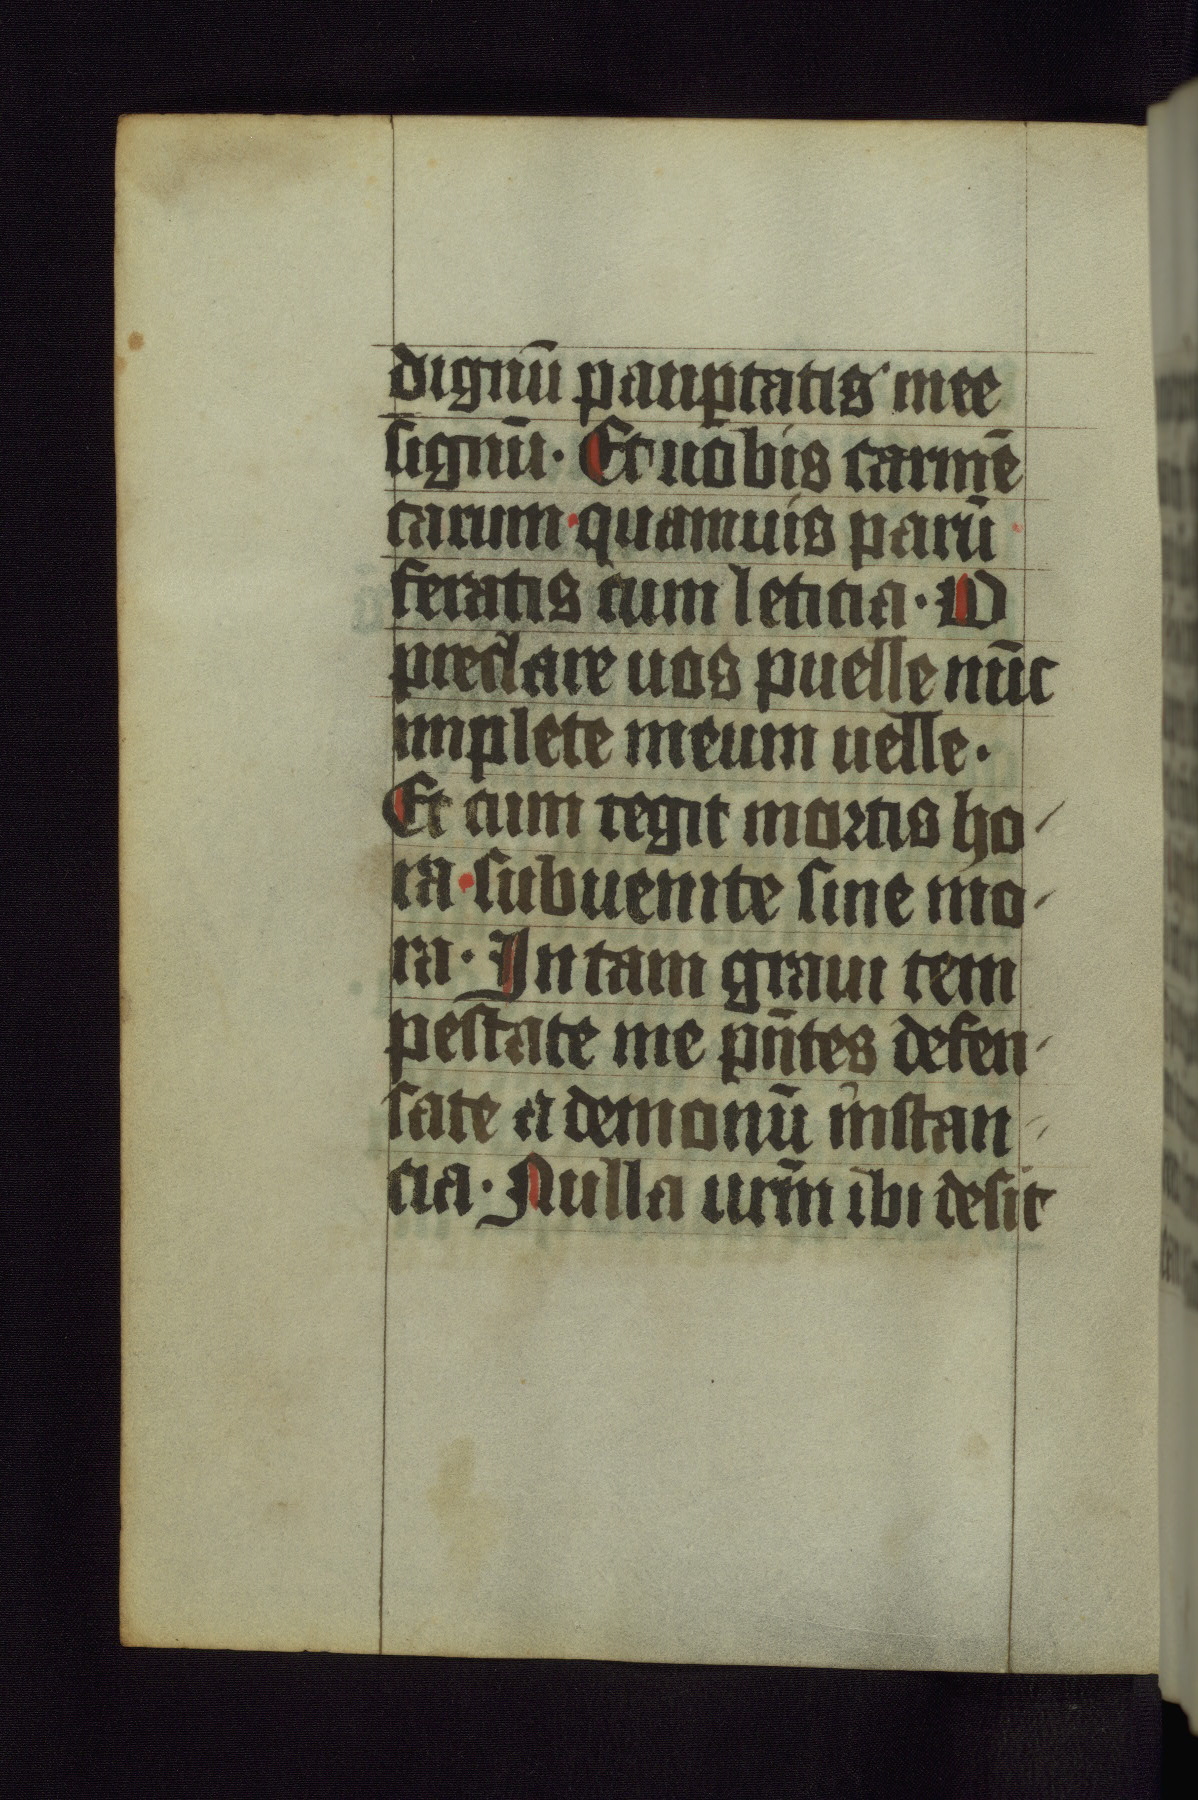 dignū paup̲tatis mee
signū· Et uobis carmē
carum·quamuis parū
feratis cum leticia· O
preclare uos puelle nūc
implete meum uelle·
Et cum tegit mortis ho
ra·subuenite sine mo
ra· In tam graui tem
pestate me pn̄tes defen
sate a demonū instan
cia· Nulla urm̄ ibi desit